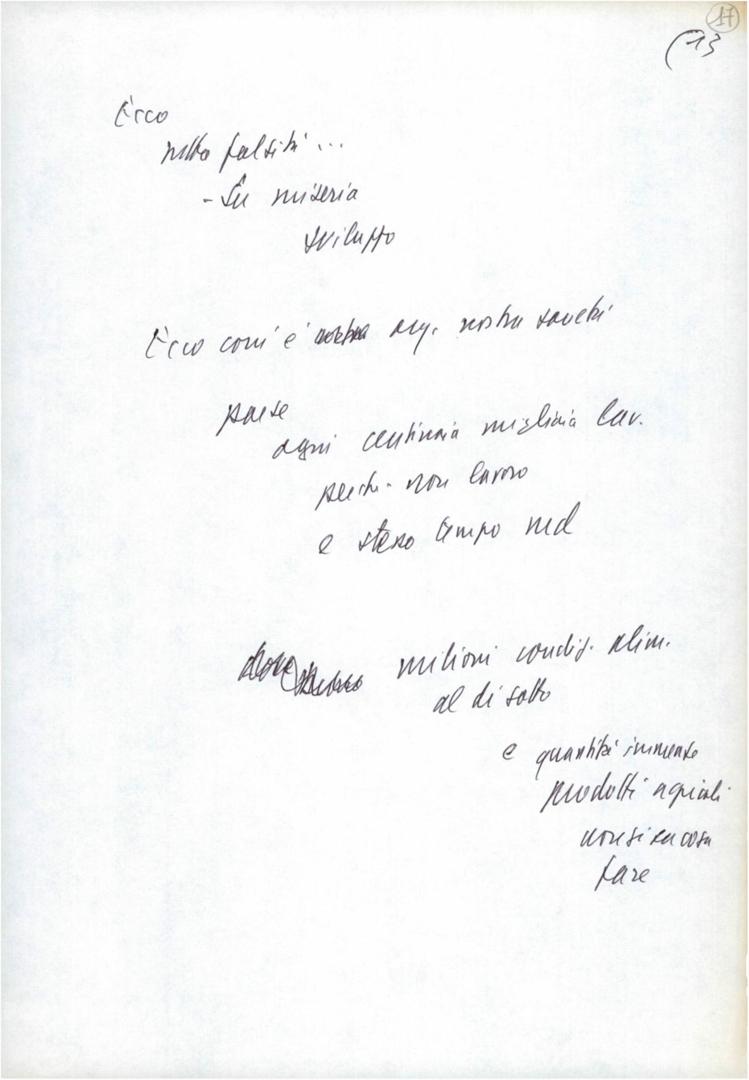 17
(13
Ecco
netta falsità...
- Su miseria
sviluppo
Ecco com'è org. nostra società
paese
ogni centinaia migliaia lav.
perché non lavoro
e stesso tempo
dove milioni condiz. alim.
al di sotto
e quantità immense
prodotti agricoli
non si sa cosa
fare